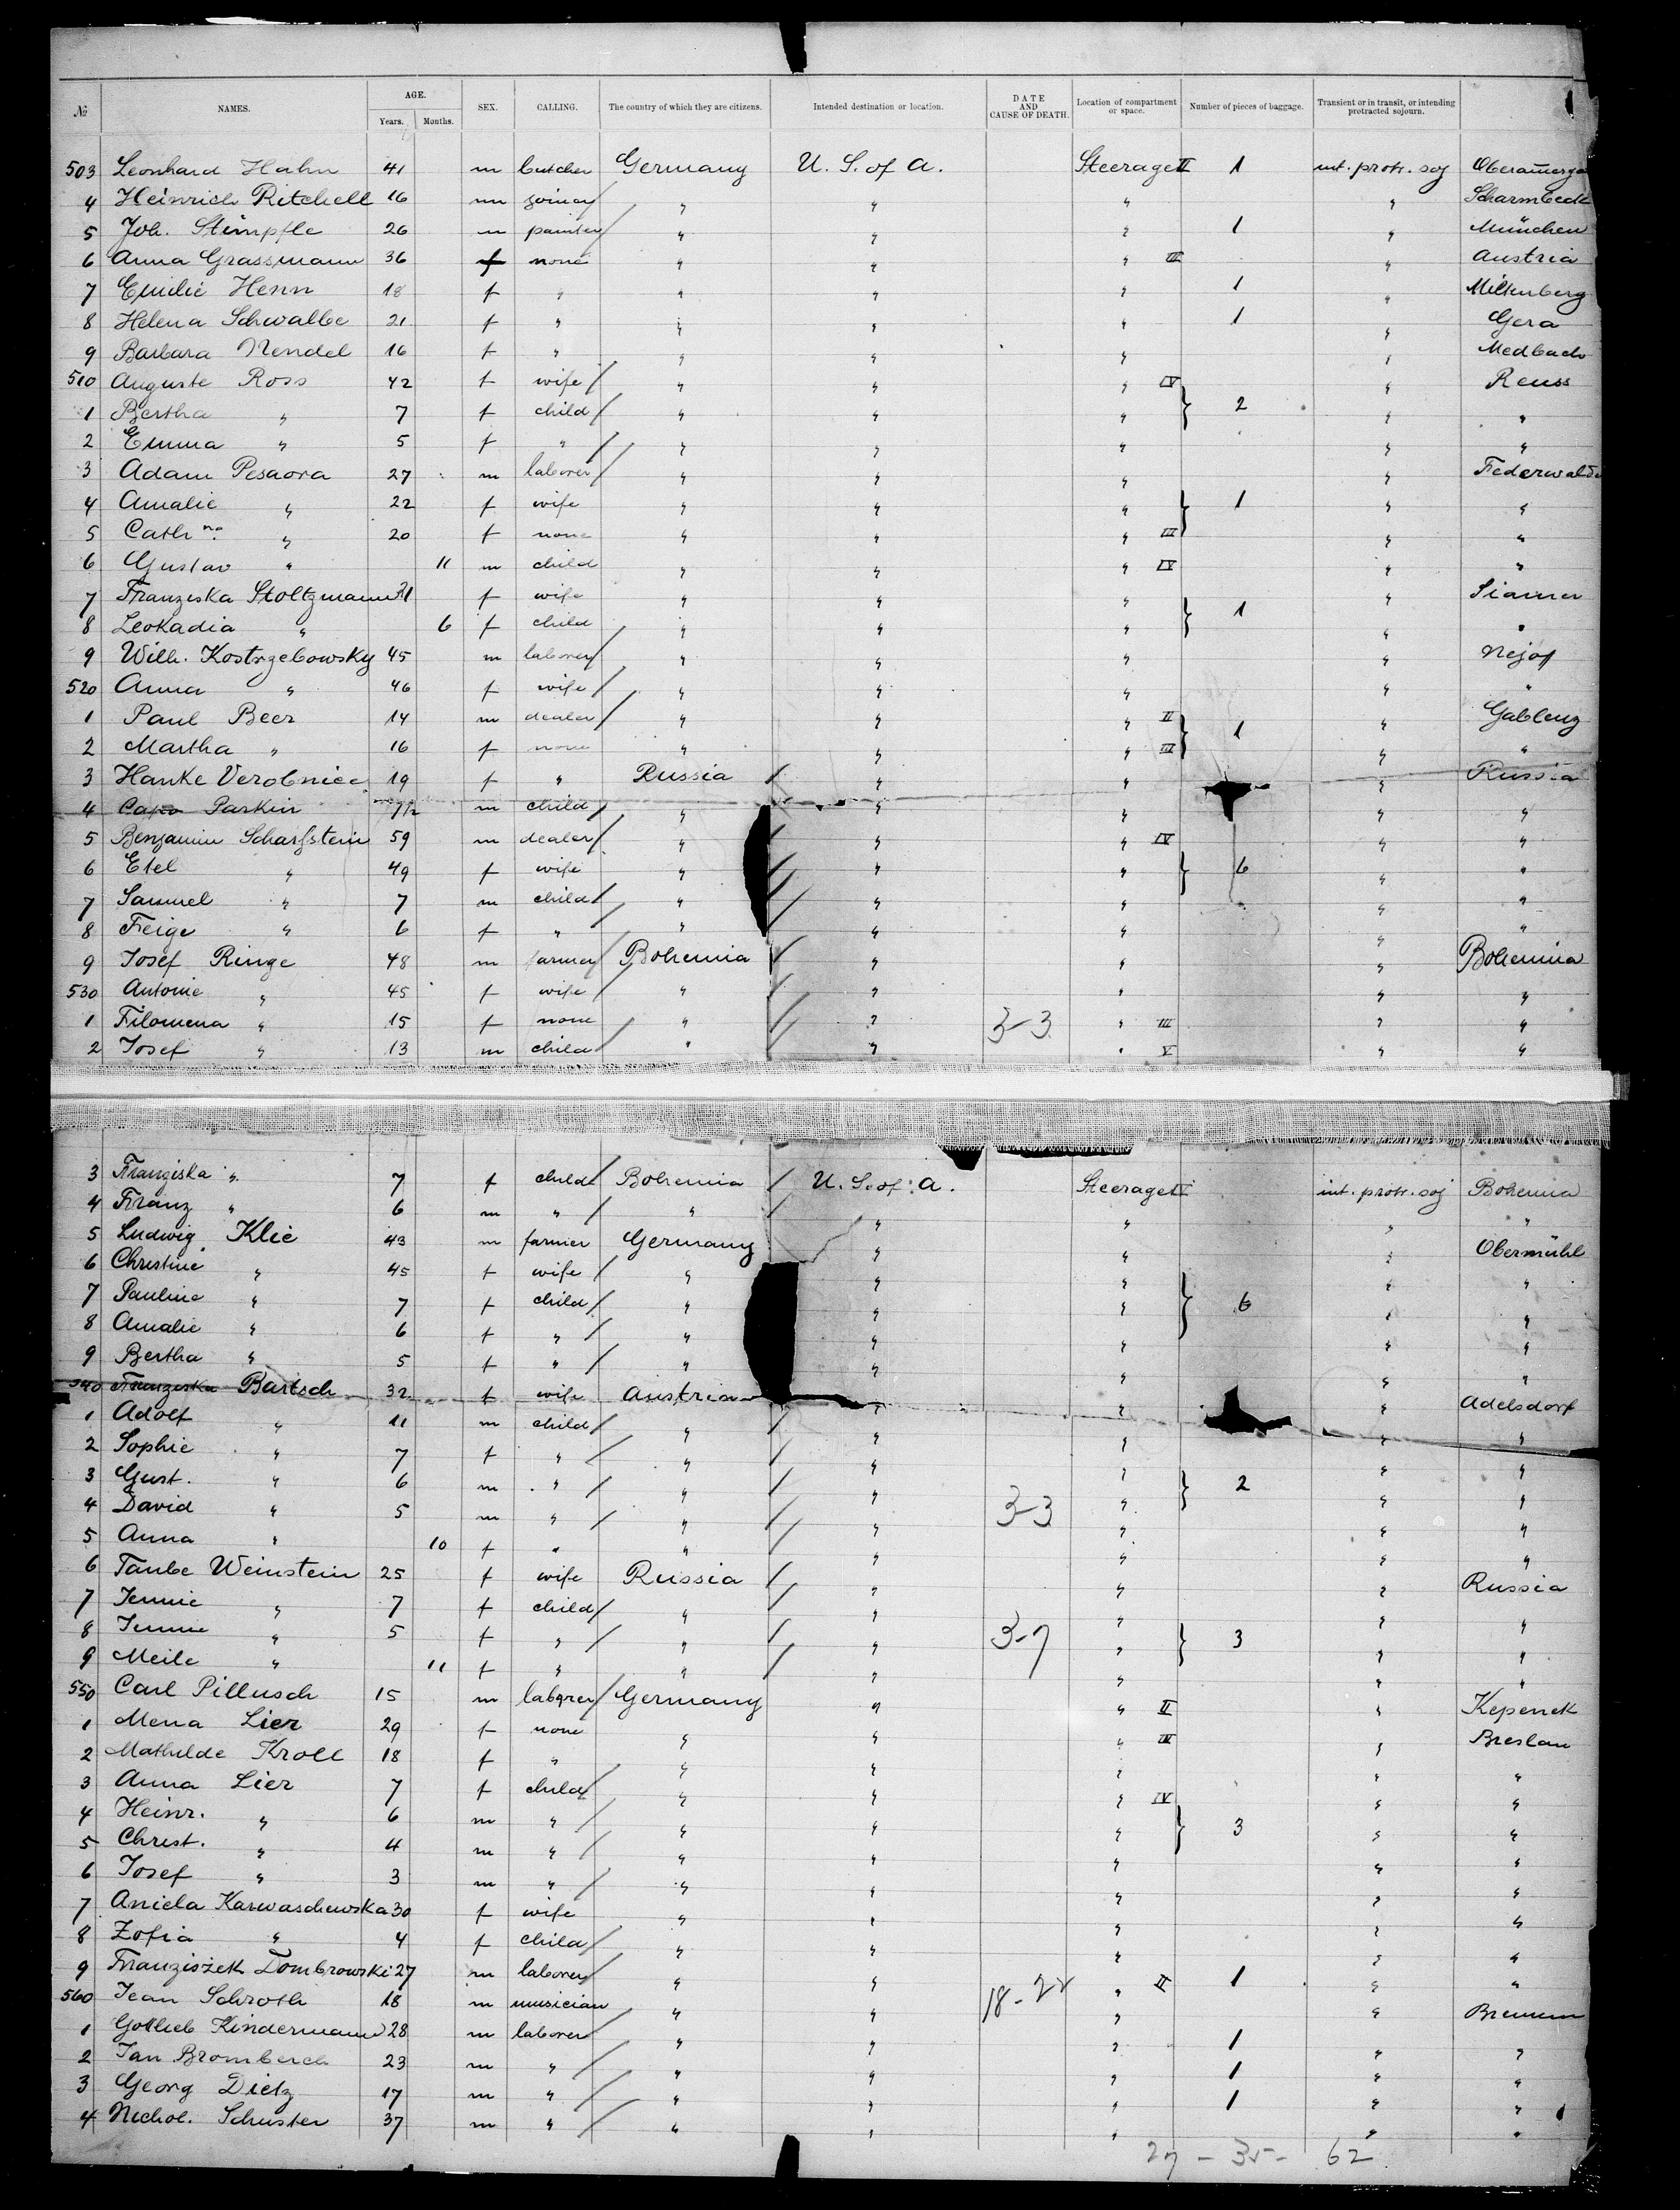 № NAMES. AGE. Years. Months. SEX. CALLING. The country of which they are citizens. Intended destination or location. DATE AND CAUSE OF DEATH. Location of compartment or space. Number of pieces of baggage. Transient or in transit, or intending protracted sojourn.
503 Leonhard Hahn 41 m butcher Germany U. S. of A. Steerage II 1 int. protr. soj Oberam̄erga
4 Heinrich Ritchell 16 m joiner " " " " Scharmbeck
5 Joh. Stimpfle 26 m painter " " " 1 " München
6 Anna Grassmann 36 f none " " " III " Austria
7 Emilie Henn 18 f " " " " 1 " Miltenberg
8 Helena Schwalbe 21 f " " " " 1 " Gera
9 Barbara Nendel 16 f " " " " " Medbach
510 Auguste Ross 42 f wife " " " IV " Reuss
1 Bertha " 7 f child " " " 2 " "
2 Emma " 5 f " " " " " "
3 Adam Pesaora 27 m laborer " " " " Federwalde
4 Amalie " 22 f wife " " " 1 " "
5 Cath na " 20 f none " " " III " "
6 Gustav " 11 m child " " " IV " "
7 Franziska Stoltzmann 21 f wife " " " "
8 Leokadia " 6 f child " " " 1 " "
9 Wilh. Kostrzebowsky 45 m laborer " " " " Nejof
520 Anna " 46 f wife " " " " "
1 Paul Beer 14 m dealer " " " II " Gablenz
2 Martha " 16 f none " " " III 1 " "
3 Hanke Verobniec 19 f " Russia " " " Russia
4 Parkin m child " " " " "
5 Benjamin Scharfstein 59 m dealer " " " IV " "
6 Etel " 49 f wife " " " 6 " "
7 Samuel " 7 m child " " " " "
8 Feige " 6 f " " " " " "
9 Josef Ringe 48 m farmer Bohemia " " " Bohemia
530 Antonie " 45 f wife " " " " "
1 Filomena " 15 f none " " 3-3 " III " "
2 Josef " 13 m child " " " V " "
3 Franziska " 7 f child Bohemia U. S. of A. Steerage int. protr. soj Bohemia
4 Franz " 6 m " " " " " "
5 Ludwig Klie 43 m farmer Germany " " " Obermühl
6 Christine " 45 f wife " " " " "
7 Pauline " 7 f child " " " 6 " "
8 Amalie " 6 f " " " " " "
9 Bertha " 5 f " " " " " "
540 Franziska Bartsch 32 f wife Austria " " " Adelsdorf
1 Adolf " 11 m child " " " " "
2 Sophie " 7 f " " " " " "
3 Gust. " 6 m " " " " 2 " "
4 David " 5 m " " " 3-3 " " "
5 Anna " 10 f " " " " " "
6 Taube Weinstein 25 f wife Russia " " " Russia
7 Jennie " 7 f child " " " " "
8 " 5 f " " " 3-7 " 3 " "
9 Meile " 11 f " " " " " "
550 Carl Pillusch 15 m laborer Germany " " II " Kepenek
1 Mena Lier 29 f none " " " III " Breslau
2 Mathilde Kroll 18 f " " " " " "
3 Anna Lier 7 f child " " " IV " "
4 Heinr. " 6 m " " " " 3 " "
5 Christ. " 4 m " " " " " "
6 Josef " 3 m " " " " " "
7 Aniela Karwaschewska 30 f wife " " " " "
8 Zofia " 4 f child " " " " "
9 Franziszek Dombrowski 27 m laborer " " " II 1 " "
560 Jean Schroth 18 m musician " " 18-22 " " Bremen
1 Gottlieb Kindermann 28 m laborer " " " 1 " "
2 Jan Bromberch 23 m " " " " 1 " "
3 Georg Dietz 17 m " " " " 1 " "
4 Nichol. Schuster 37 m " " " " " "
27 - 35 - 62